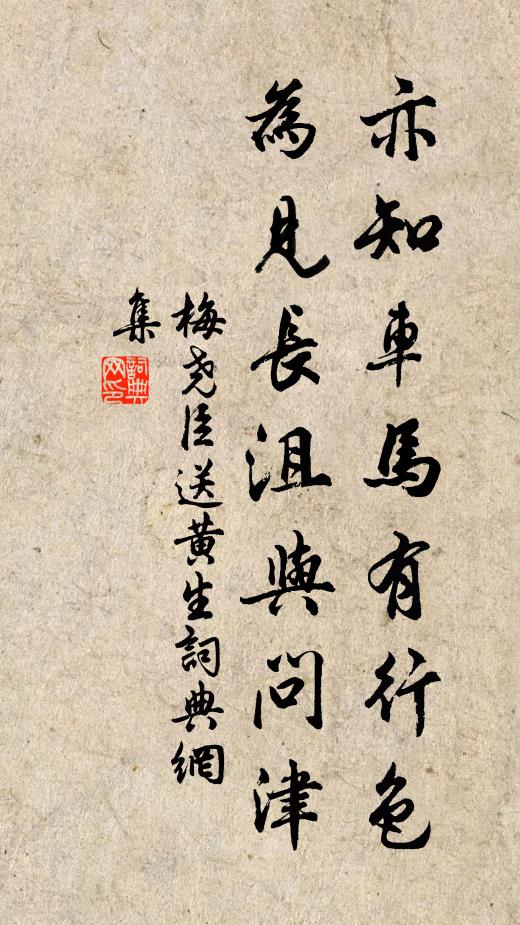 亦知車馬有行色
為見長沮與問津
梅堯臣送黃生詞典網
集
詞典
網印